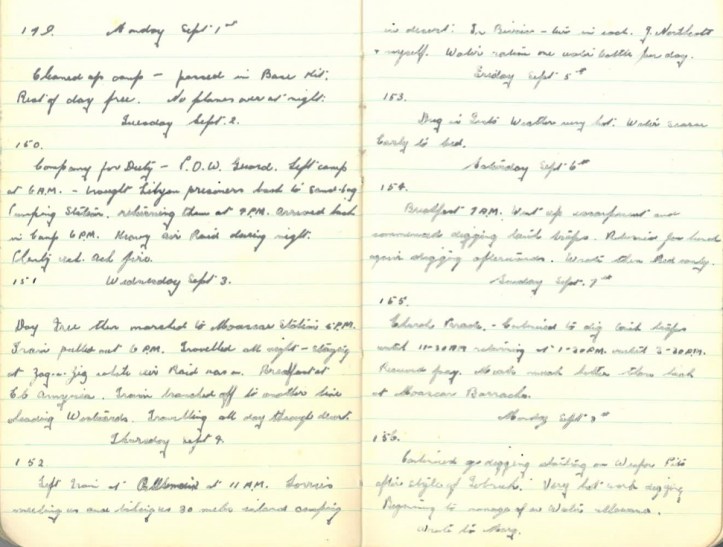 149. Monday Sept 1st
Cleaned up camp – passed in Base Kit.
Rest of day free. No planes over at night.
Tuesday Sept. 2.
150.
Company for Duty – P.O.W. Guard. Left camp
at 6 A.M. – brought Libyan prisoners back to Sand-bag
Camping Station, returning them at 4 P.M. Arrived back
in Camp 6 P.M. Heavy Air Raid during night.
ack. ack fire.
151 Wednesday Sept 3.
Day Free then marched to Moascar Station 5 P.M.
Train pulled out 6 P.M. Travelled all night – staying
at Zag-a-Zig while Air Raid was on. Breakfast at
El Amyria. Train branched off to another line
leading Westwards. Travelling all day through desert.
Thursday Sept 4.
152
Left Train at at 11 A.M. Lorries
meeting us and taking us 30 miles inland camping
in desert. In – two in each. J. Northcott
& myself. Water ration one water bottle per day.
Friday Sept 5th
153.
Dug in Tents Weather very hot. Water scarce
Early to bed.
Saturday Sept 6th
154.
Breakfast 7 A.M. Went up escarpment and
commenced digging tank traps. Returned for lunch
again digging afternoon. Wrote then Bed early.
Sunday Sept. 7th
155.
Church Parade. – Continued to dig tank traps
until 11-30 AM returning at 1-30 P.M. until 3-30 P.M.
Received pay. Meals much better than back
at Moascar Barracks.
Monday Sept 8th
156.
Continued digging starting on Weapon Pits
after style of Tobruk. Very hot work digging
Beginning to manage on Water
Wrote to Mary.